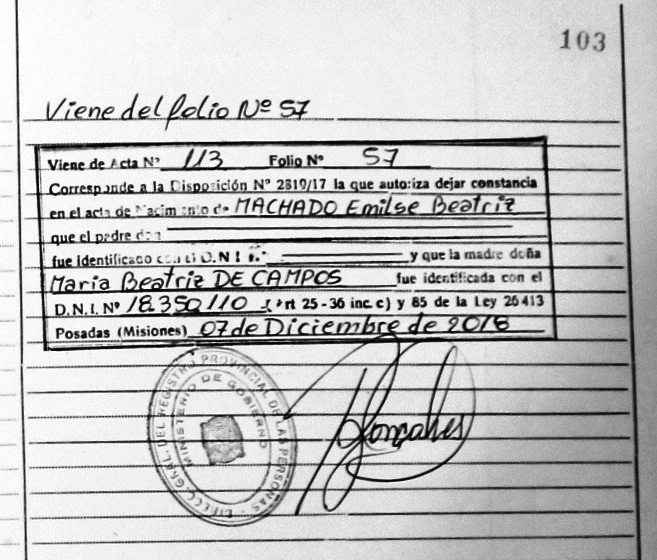 103
Viene del folio Nº 57
Viene de Acta Nº 113 Folio Nº 57
Corresponde a la Disposición Nº 2819/17 la que autoriza dejar constancia
en el acta de Nacimiento de MACHADO Emilse Beatriz
que el padre don
fue identificado con el D.N.I. Nº y que la madre doña
Maria Beatriz DE CAMPOS fue identificada con el
D.N.I. Nº 18.350.110 (Art 25-36 inc c) y 85 de la Ley 26413
Posadas (Misiones) 07 de Diciembre de 2018
GRAL. DEL REGISTRO PROVINCIAL DE LAS PERSONAS
MINISTERIO DE GOBIERNO